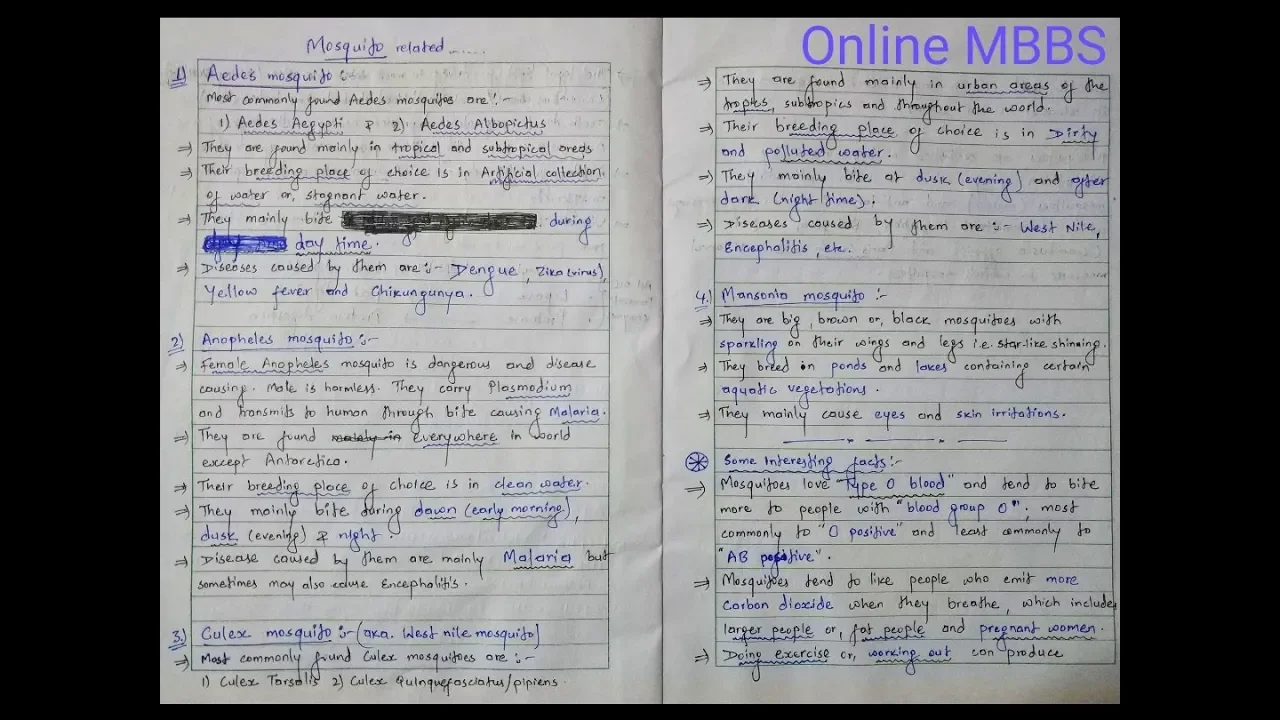 Mosquito related......
1) Aedes mosquito :-
Most commonly found Aedes mosquitoes are :-
1) Aedes Aegypti & 2) Aedes Albopictus
⇒ They are found mainly in tropical and subtropical areas
⇒ Their breeding place of choice is in Artificial collection
of water or, stagnant water.
⇒ They mainly bite during
day time.
⇒ Diseases caused by them are :- Dengue, Zika (virus),
Yellow fever and Chikungunya.
2) Anopheles mosquito :-
⇒ Female Anopheles mosquito is dangerous and disease
causing. Male is harmless. They carry Plasmodium
and transmits to human through bite causing Malaria.
⇒ They are found mainly in everywhere in world
except Antarctica.
⇒ Their breeding place of choice is in clean water.
⇒ They mainly bite during dawn (early morning),
dusk (evening) & night.
⇒ Disease caused by them are mainly Malaria but
sometimes may also cause Encephalitis.
3) Culex mosquito :- (aka. West nile mosquito)
⇒ Most commonly found Culex mosquitoes are :-
1) Culex Tarsalis 2) Culex Quinquefasciatus/pipiens.
Online MBBS
⇒ They are found mainly in urban areas of the
tropics, subtropics and throughout the world.
⇒ Their breeding place of choice is in Dirty
and polluted water.
⇒ They mainly bite at dusk (evening) and after
dark (night time).
⇒ Diseases caused by them are :- West Nile,
Encephalitis, etc.
4) Mansonia mosquito :-
⇒ They are big, brown or, black mosquitoes with
sparkling on their wings and legs i.e. star-like shinning.
⇒ They breed in ponds and lakes containing certain
aquatic vegetations.
⇒ They mainly cause eyes and skin irritations.
Some Interesting facts :-
⇒ Mosquitoes love "Type O blood" and tend to bite
more to people with "blood group O", most
commonly to "O positive" and least commonly to
"AB positive".
⇒ Mosquitoes tend to like people who emit more
carbon dioxide when they breathe, which includes
larger people or, fat people and pregnant women.
⇒ Doing exercise or, working out can produce